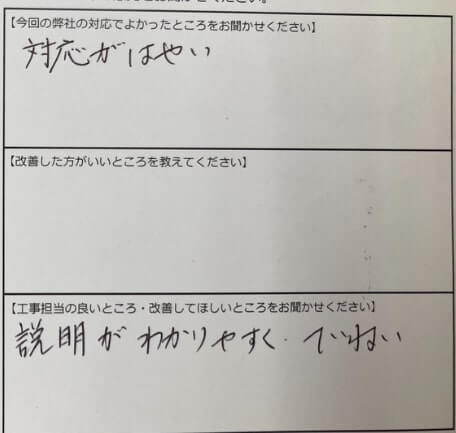 ください。
【今回の弊社の対応でよかったところをお聞かせください】
対応がはやい
【改善した方がいいところを教えてください】
【工事担当の良いところ・改善してほしいところをお聞かせください】
説明がわかりやすく、ていねい